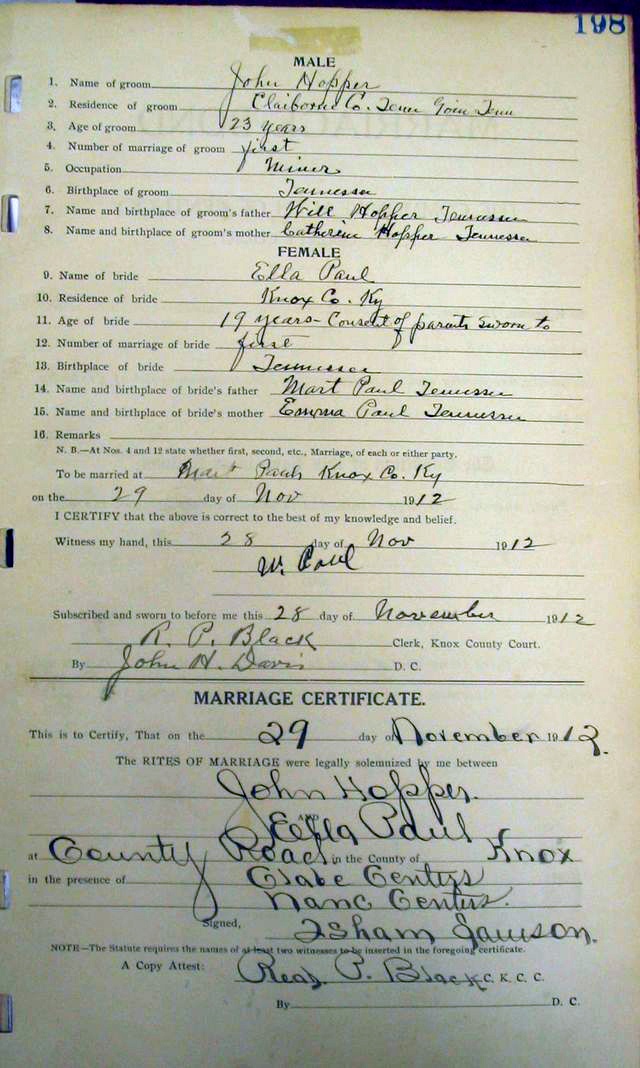 198
MALE
1. Name of groom John Hopper
2. Residence of groom Claiborne Co. Tenn Goin Tenn
3. Age of groom 23 years
4. Number of marriage of groom first
5. Occupation Miner
6. Birthplace of groom Tennessee
7. Name and birthplace of groom's father Will Hopper Tennessee
8. Name and birthplace of groom's mother Catherine Hopper Tennessee
FEMALE
9. Name of bride Ella Paul
10. Residence of bride Knox Co. Ky
11. Age of bride 19 years - Consent of parents sworn to
12. Number of marriage of bride first
13. Birthplace of bride Tennessee
14. Name and birthplace of bride's father Mart Paul Tennessee
15. Name and birthplace of bride's mother Emma Paul Tennessee
16. Remarks
N. B.—At Nos. 4 and 12 state whether first, second, etc., Marriage, of each or either party.
To be married at Mart Pauls Knox Co. Ky
on the 29 day of Nov 1912
I CERTIFY that the above is correct to the best of my knowledge and belief.
Witness my hand, this 28 day of Nov 1912
Paul
Subscribed and sworn to before me this 28 day of November 1912
R. P. Black Clerk, Knox County Court.
By John H. Davis D. C.
MARRIAGE CERTIFICATE.
This is to Certify, That on the 29 day of November 1912.
The RITES OF MARRIAGE were legally solemnized by me between
John Hopper.
AND
Eella Paul
at County Road in the County of Knox
in the presence of Gentrys
Gentrys.
Signed, Isham
NOTE—The Statute requires the names of at least two witnesses to be inserted in the foregoing certificate.
A Copy Attest: Read P. Black C. K. C. C.
By D. C.